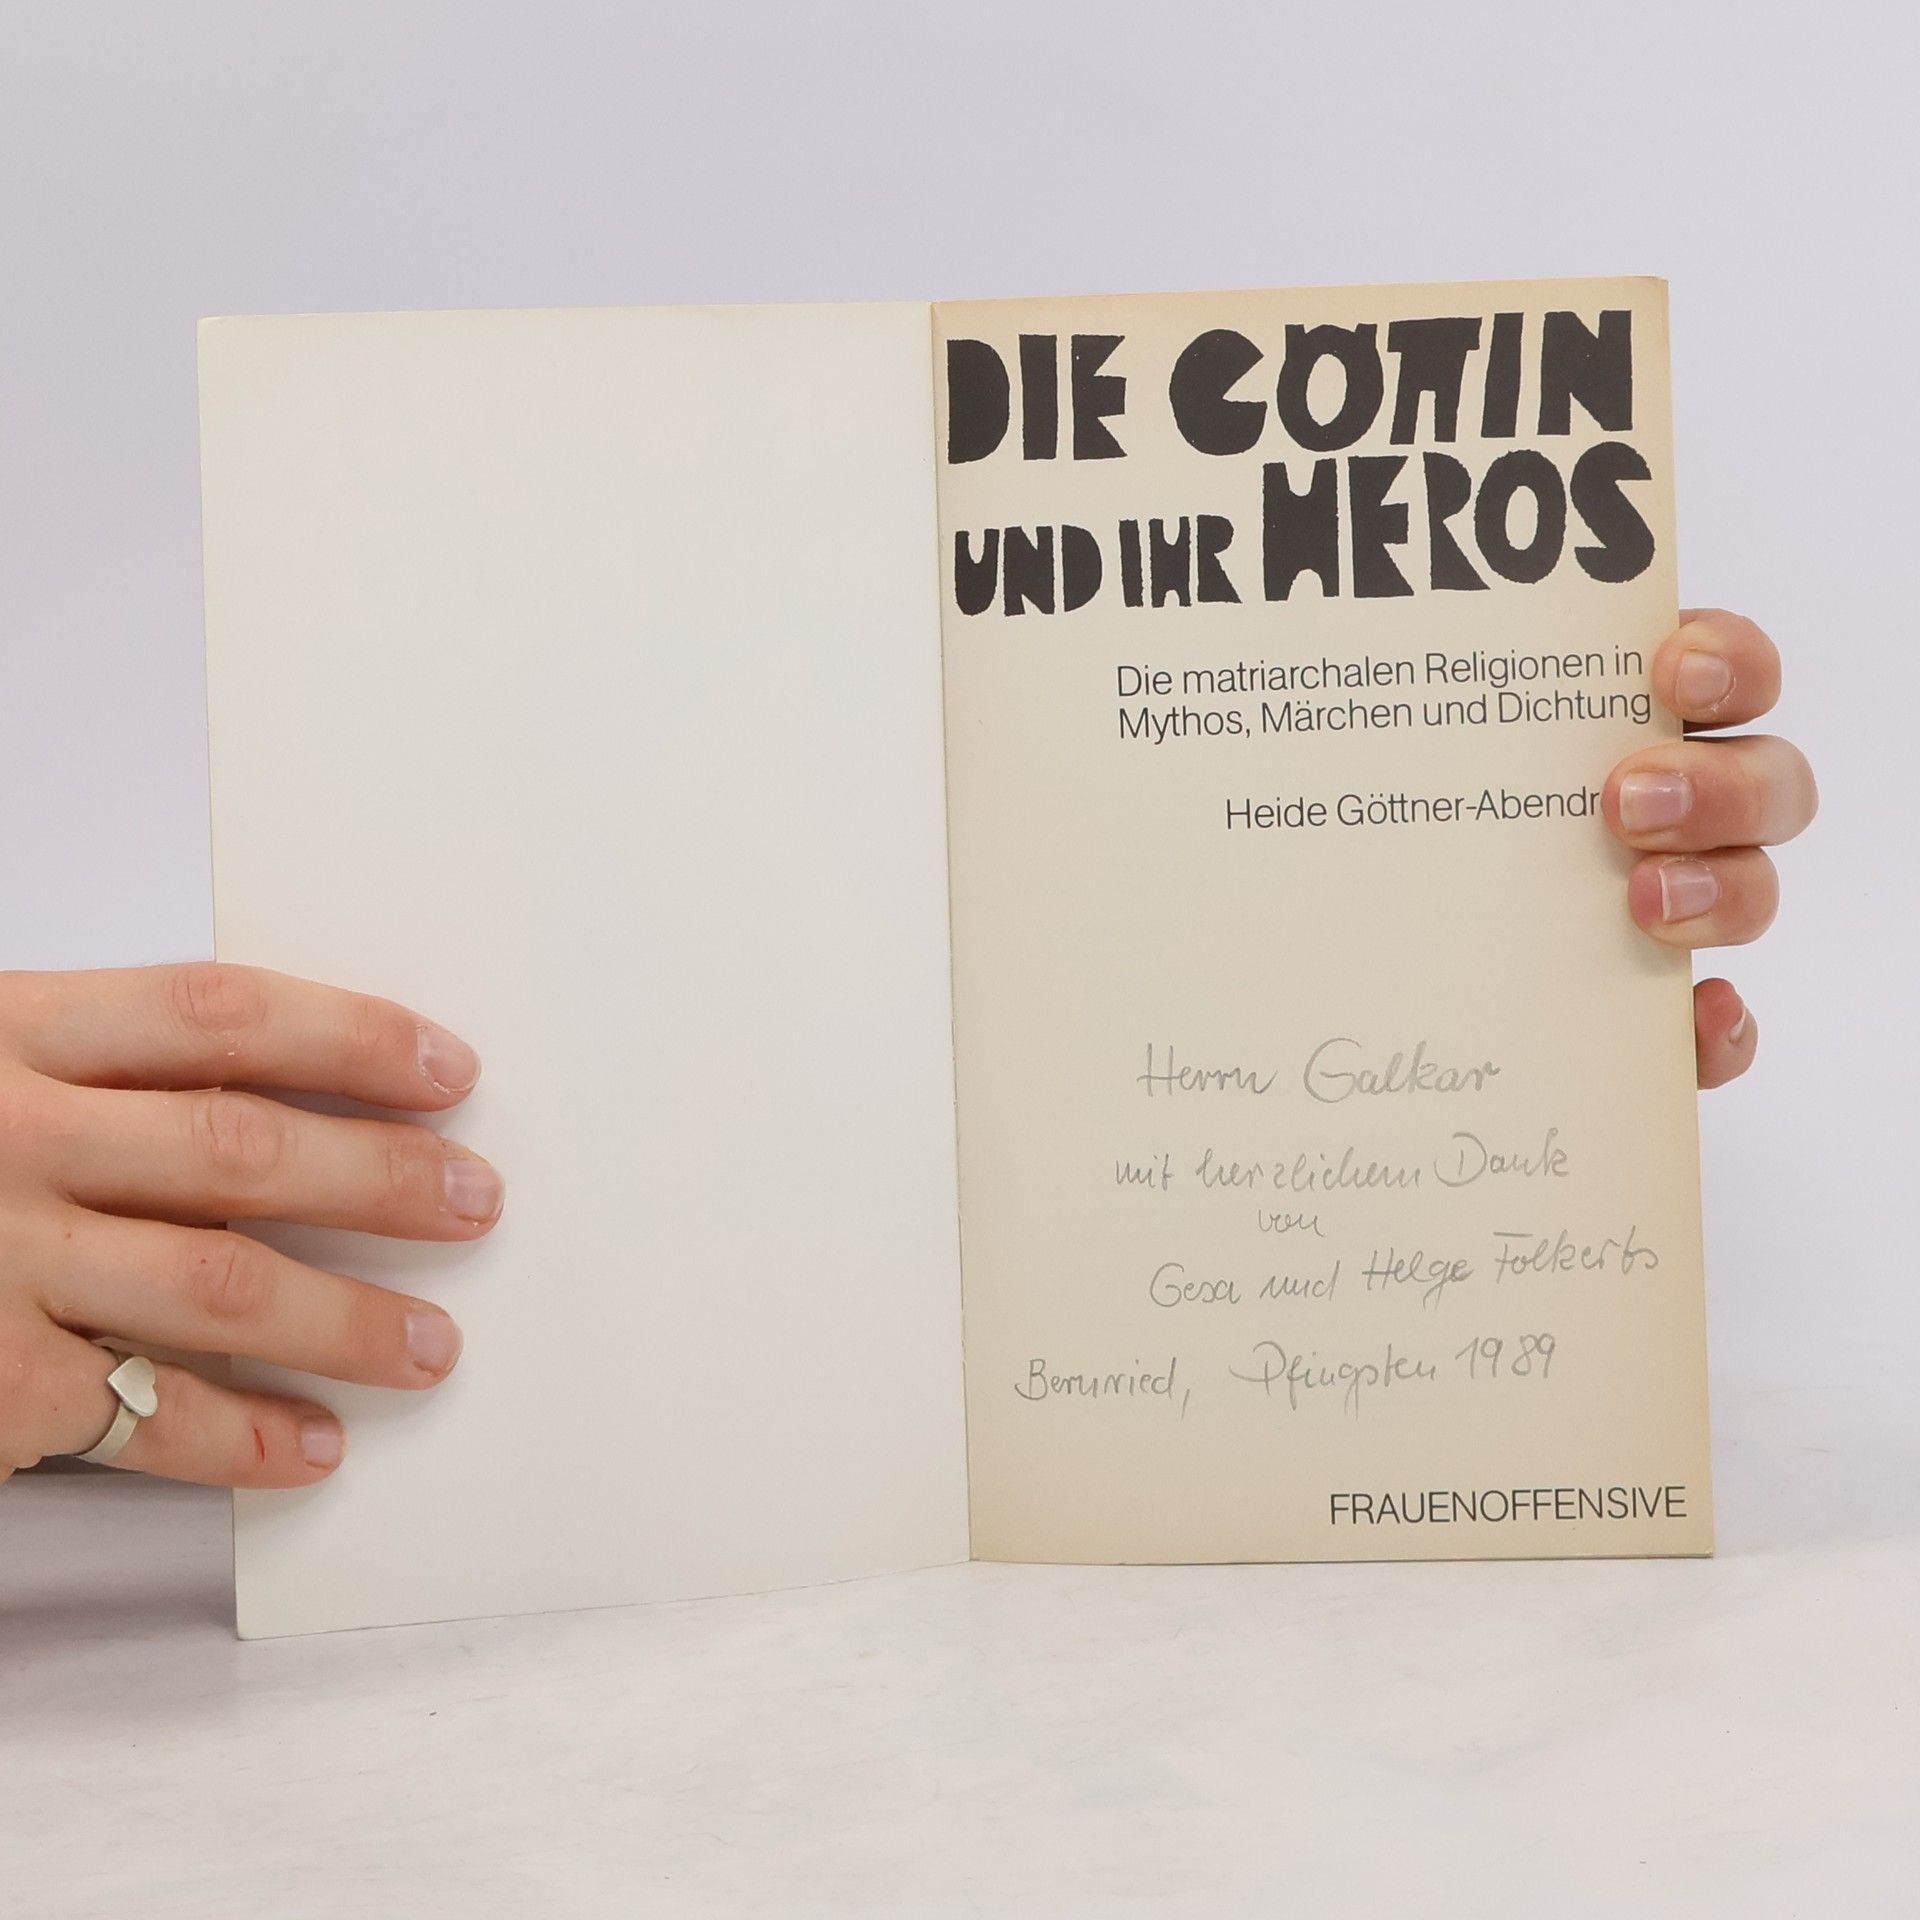 DIE GÖTTIN
UND IHR HEROS
Die matriarchalen Religionen in
Mythos, Märchen und Dichtung
Heide Göttner-Abendr
Herrn Galkar
mit herzlichem Dank
von
Gesa und Helge Folkerts
Bernried, Pfingsten 1989
FRAUENOFFENSIVE